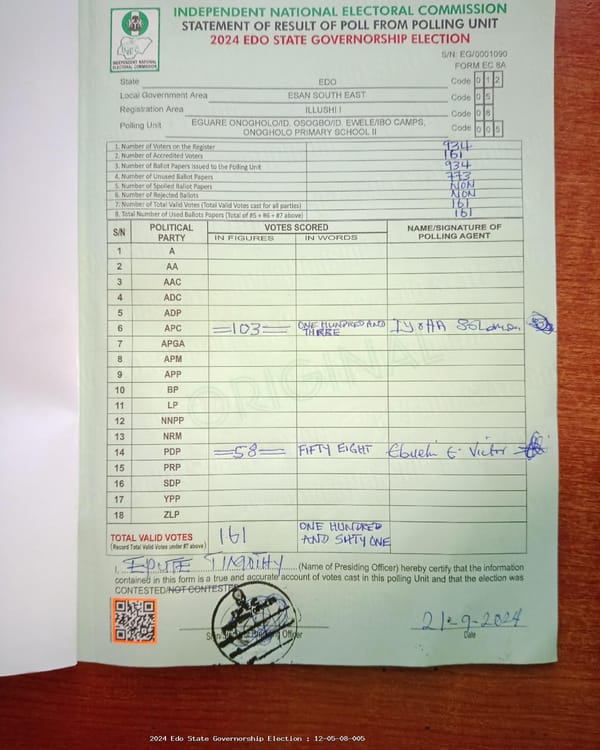 INDEPENDENT NATIONAL ELECTORAL COMMISSION
STATEMENT OF RESULT OF POLL FROM POLLING UNIT
2024 EDO STATE GOVERNORSHIP ELECTION
INEC
INDEPENDENT NATIONAL ELECTORAL COMMISSION
S/N: EG/0001090
FORM EC 8A
State EDO Code 0 1 2
Local Government Area ESAN SOUTH EAST Code 0 5
Registration Area ILLUSHI I Code 0 8
Polling Unit EGUARE ONOGHOLO/ID, OSOGBO/ID, EWELE/IBO CAMPS, ONOGHOLO PRIMARY SCHOOL II Code 0 0 5
1. Number of Voters on the Register 934
2. Number of Accredited Voters 161
3. Number of Ballot Papers issued to the Polling Unit 934
4. Number of Unused Ballot Papers 773
5. Number of Spoiled Ballot Papers NON
6. Number of Rejected Ballots NON
7. Number of Total Valid Votes (Total Valid Votes cast for all parties) 161
8. Total Number of Used Ballots Papers (Total of #5 + #6 + #7 above) 161
S/N POLITICAL PARTY VOTES SCORED NAME/SIGNATURE OF POLLING AGENT
IN FIGURES IN WORDS
1 A
2 AA
3 AAC
4 ADC
5 ADP
6 APC =103= ONE HUNDRED AND THREE IYOHA Solomon
7 APGA
8 APM
9 APP
10 BP
11 LP
12 NNPP
13 NRM
14 PDP =58= FIFTY EIGHT E. Victor
15 PRP
16 SDP
17 YPP
18 ZLP
ORIGINAL
TOTAL VALID VOTES 161 ONE HUNDRED AND SHTY ONE
(Record Total Valid Votes under #7 above)
I, EPUTE TIMOTHY (Name of Presiding Officer) hereby certify that the information
contained in this form is a true and accurate account of votes cast in this polling Unit and that the election was
CONTESTED/NOT CONTESTED
Officer
21-9-2024
Date
2024 Edo State Governorship Election : 12-05-08-005